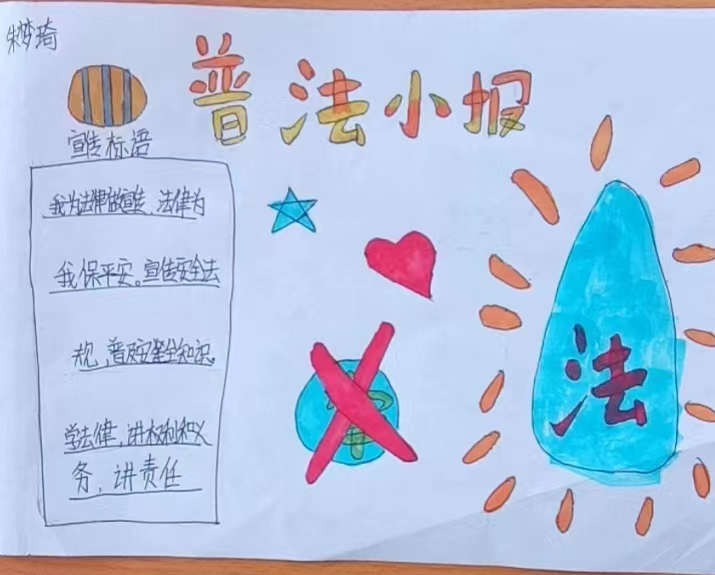 朱梦琦
普法小报
宣传标语
我为法律做宣传、法律为
我保平安。宣传安全法
规,普及安全知识。
学法律,讲权利和义
务,讲责任
法